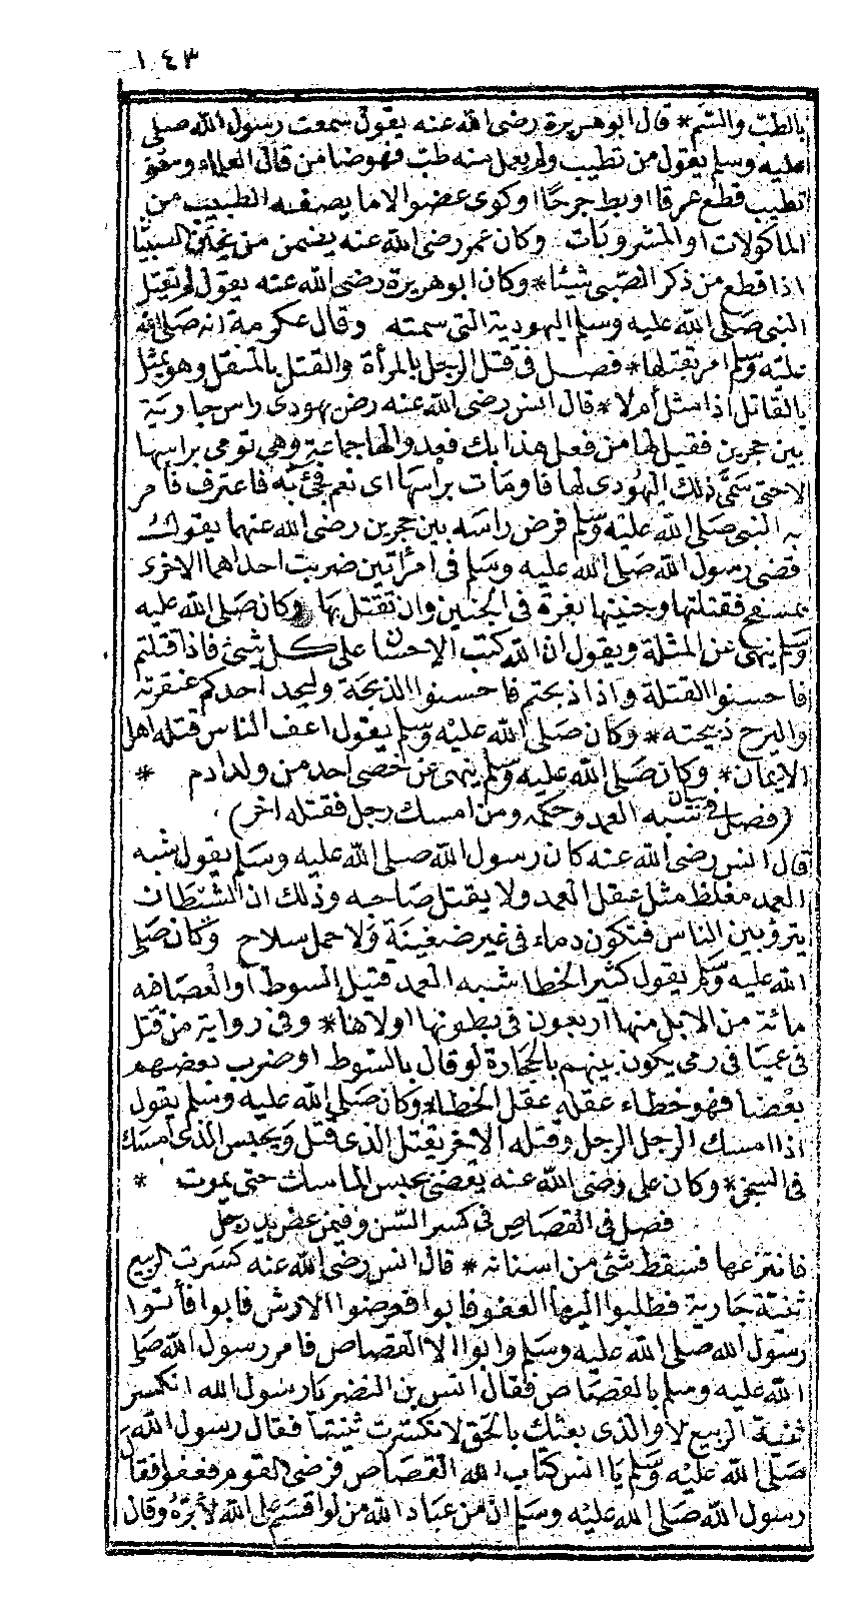 ١٤٣
بالطب والسم * قال ابو هريرة رضى الله عنه يقول سمعت رسول الله صلى
عليه وسلم يقول من تطبب ولم يعلم منه طب فهو ضامن قال العلماء وهو
تطبب قطع عرقا او بط جرحا او كوى عضوا لا ما يصفه الطبيب من
الماكولات او المشروبات وكان عمر رضى الله عنه يضمن من يختن الصبيان
اذا قطع من ذكر الصبى شيئا * وكان ابو هريرة رضى الله عنه يقول لم يقتل
النبى صلى الله عليه وسلم اليهودية التى سمته وقال عكرمة انه صلى الله
عليه وسلم امر بقتلها * فصل فى قتل الرجل بالمرأة والقتل بالمثقل وهو يمثل
بالقاتل اذا مثل أم لا * قال انس رضى الله عنه رض يهودى راس جارية
بين حجرين فقيل لها من فعل هذا بك فعدوا لها جماعة وهى تومى براسها
لا حتى سمى ذلك اليهودى لها فاومات براسها اى نعم فجئ به فاعترف فامر
به النبى صلى الله عليه وسلم فرض راسه بين حجرين رضى الله عنهما يقول
قضى رسول الله صلى الله عليه وسلم فى امرأتين ضربت احداهما الاخرى
بمسطح فقتلتها وجنينها بغرة فى الجنين وان تقتل بها وكان صلى الله عليه
وسلم ينهى عن المثلة ويقول ان الله كتب الاحسان على كل شئ فاذا قتلتم
فاحسنوا القتلة واذا ذبحتم فاحسنوا الذبحة وليحد احدكم شفرته
وليرح ذبيحته * وكان صلى الله عليه وسلم يقول اعف الناس قتله اهل
الايمان * وكان صلى الله عليه وسلم ينهى عن خصى احد من ولد ادم *
(فصل فى بيان شبه العمد وحكمه ومن امسك رجل فقتله اخر)
قال انس رضى الله عنه كان رسول الله صلى الله عليه وسلم يقول شبه
العمد مغلظ مثل عقل العمد ولا يقتل صاحبه وذلك ان الشيطان
ينزو بين الناس فتكون دماء فى غير ضغينة ولا حمل سلاح وكان صلى
الله عليه وسلم يقول كثير الخطا شبه العمد قتيل السوط او العصا فيه
مائة من الابل منها اربعون فى بطونها اولادها * وفى رواية من قتل
فى عميا فى رمى يكون بينهم بالحجارة لو قال بالسوط او ضرب بعضهم
بعضا فهو خطاء عقله عقل الخطا * وكان صلى الله عليه وسلم يقول
اذا امسك الرجل الرجل وقتله الاخر يقتل الذى قتل ويحبس الذى امسك
فى السجن * وكان على رضى الله عنه يقضى بحبس الماسك حتى يموت *
فصل فى القصاص فى كسر السن وفيمن عض يد رجل
فانتزعها فسقط شئ من اسنانه * قال انس رضى الله عنه كسرت الربيع
ثنية جارية فطلبوا اليها العفو فابوا فعرضوا الارش فابوا فأتوا
رسول الله صلى الله عليه وسلم وابوا الا القصاص فامر رسول الله صلى
الله عليه وسلم بالقصاص فقال انس بن النضر يا رسول الله اتكسر
ثنية الربيع لا والذى بعثك بالحق لا تكسرت ثنيتها فقال رسول الله
صلى الله عليه وسلم يا انس كتاب الله القصاص فرضى القوم فعفوا فقال
رسول الله صلى الله عليه وسلم ان من عباد الله من لو اقسم على الله لأبره وقال